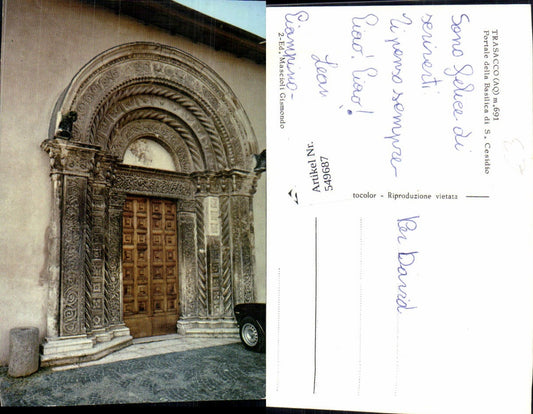 TRASACCO (AQ) m. 691
Portale della Basilica di S. Cesidio
Sono felice di
scriverti
Ti penso sempre
Ciao! Ciao!
Giampiero -
2-Ed. Mascioli Gismondo
Artikel Nr.
549687
tocolor - Riproduzione vietata
Per David